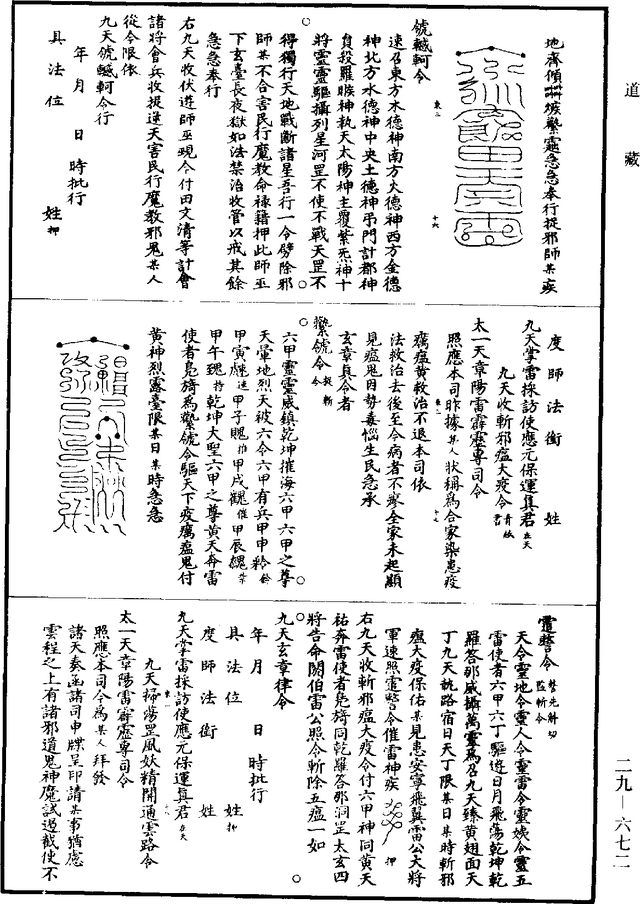 道藏
地齋傾□娭繫靈急急奉行捉邪師某疾
號轗軻令
速召東方木德神南方火德神西方金德
神北方水德神中央土德神弔門計都神
貟殺羅睺神執天太陽神主覆紫炁神十
將靈靈驅攝列星河罡不使不戰天罡不
得獨行天地戰斷諸星吾行一令劈除邪
師某不合害民行魔教命祿籍押此師巫
下玄臺長夜獄如法禁治收管以戒其餘
急急奉行
右九天收伏遊師巫覡令付田文清等計會
諸將會兵收捉逆天害民行魔教邪鬼某人
從令限依
九天號轗軻令行
年月日時批行
具法位姓押
度師法銜姓
九天掌雷採訪使應元保運真君在天
九天收斬邪瘟大疫令青紙書
太一天章陽雷霹靂專司令
照應本司昨據某人狀稱爲合家染患疫
癘瘟黃救治不退本司依
法救治去後至今病者不瘳全家未起顯
見瘟鬼因勢毒惱生民急承
玄章真令者
繫號令
六甲靈靈威鎮乾坤摧海六甲六甲之尊
天暈地烈天被六令六甲有兵甲申
甲寅甲子甲戌甲辰
甲午乾坤大聖六甲之尊黃天奔雷
使者鳧旖爲繫號令驅天下疫癘瘟鬼付
黃神烈露臺限某日某時急急
靈謷令
天令靈地令靈人令靈雷令靈娥令靈五
雷使者六甲六丁驅遊日月飛蕩乾坤乾
羅答那威攝萬靈爲召九天臻黃翅面天
丁九天執路宿日天丁限某日某時斬邪
瘟大疫保佑某見患安寧飛翼雷公大將
軍速照靈謷令催雷神疾押
右九天收斬邪瘟大疫令付六甲神同黃天
祐奔雷使者鳧旖同乾羅答那洞罡太玄四
將告命關伯雷公照令斬除五瘟一如
九天玄章律令
年月日時批行
具法位姓押
度師法銜姓
九天掌雷採訪使應元保運真君在天
九天掃蕩罡風妖精開通雲路令
太一天章陽雷霹靂專司令
照應本司今爲某人拜發
諸天奏函諸司申牒呈印請某事猶慮
雲程之上有諸邪道鬼神魔試過截使不
二九—六七二